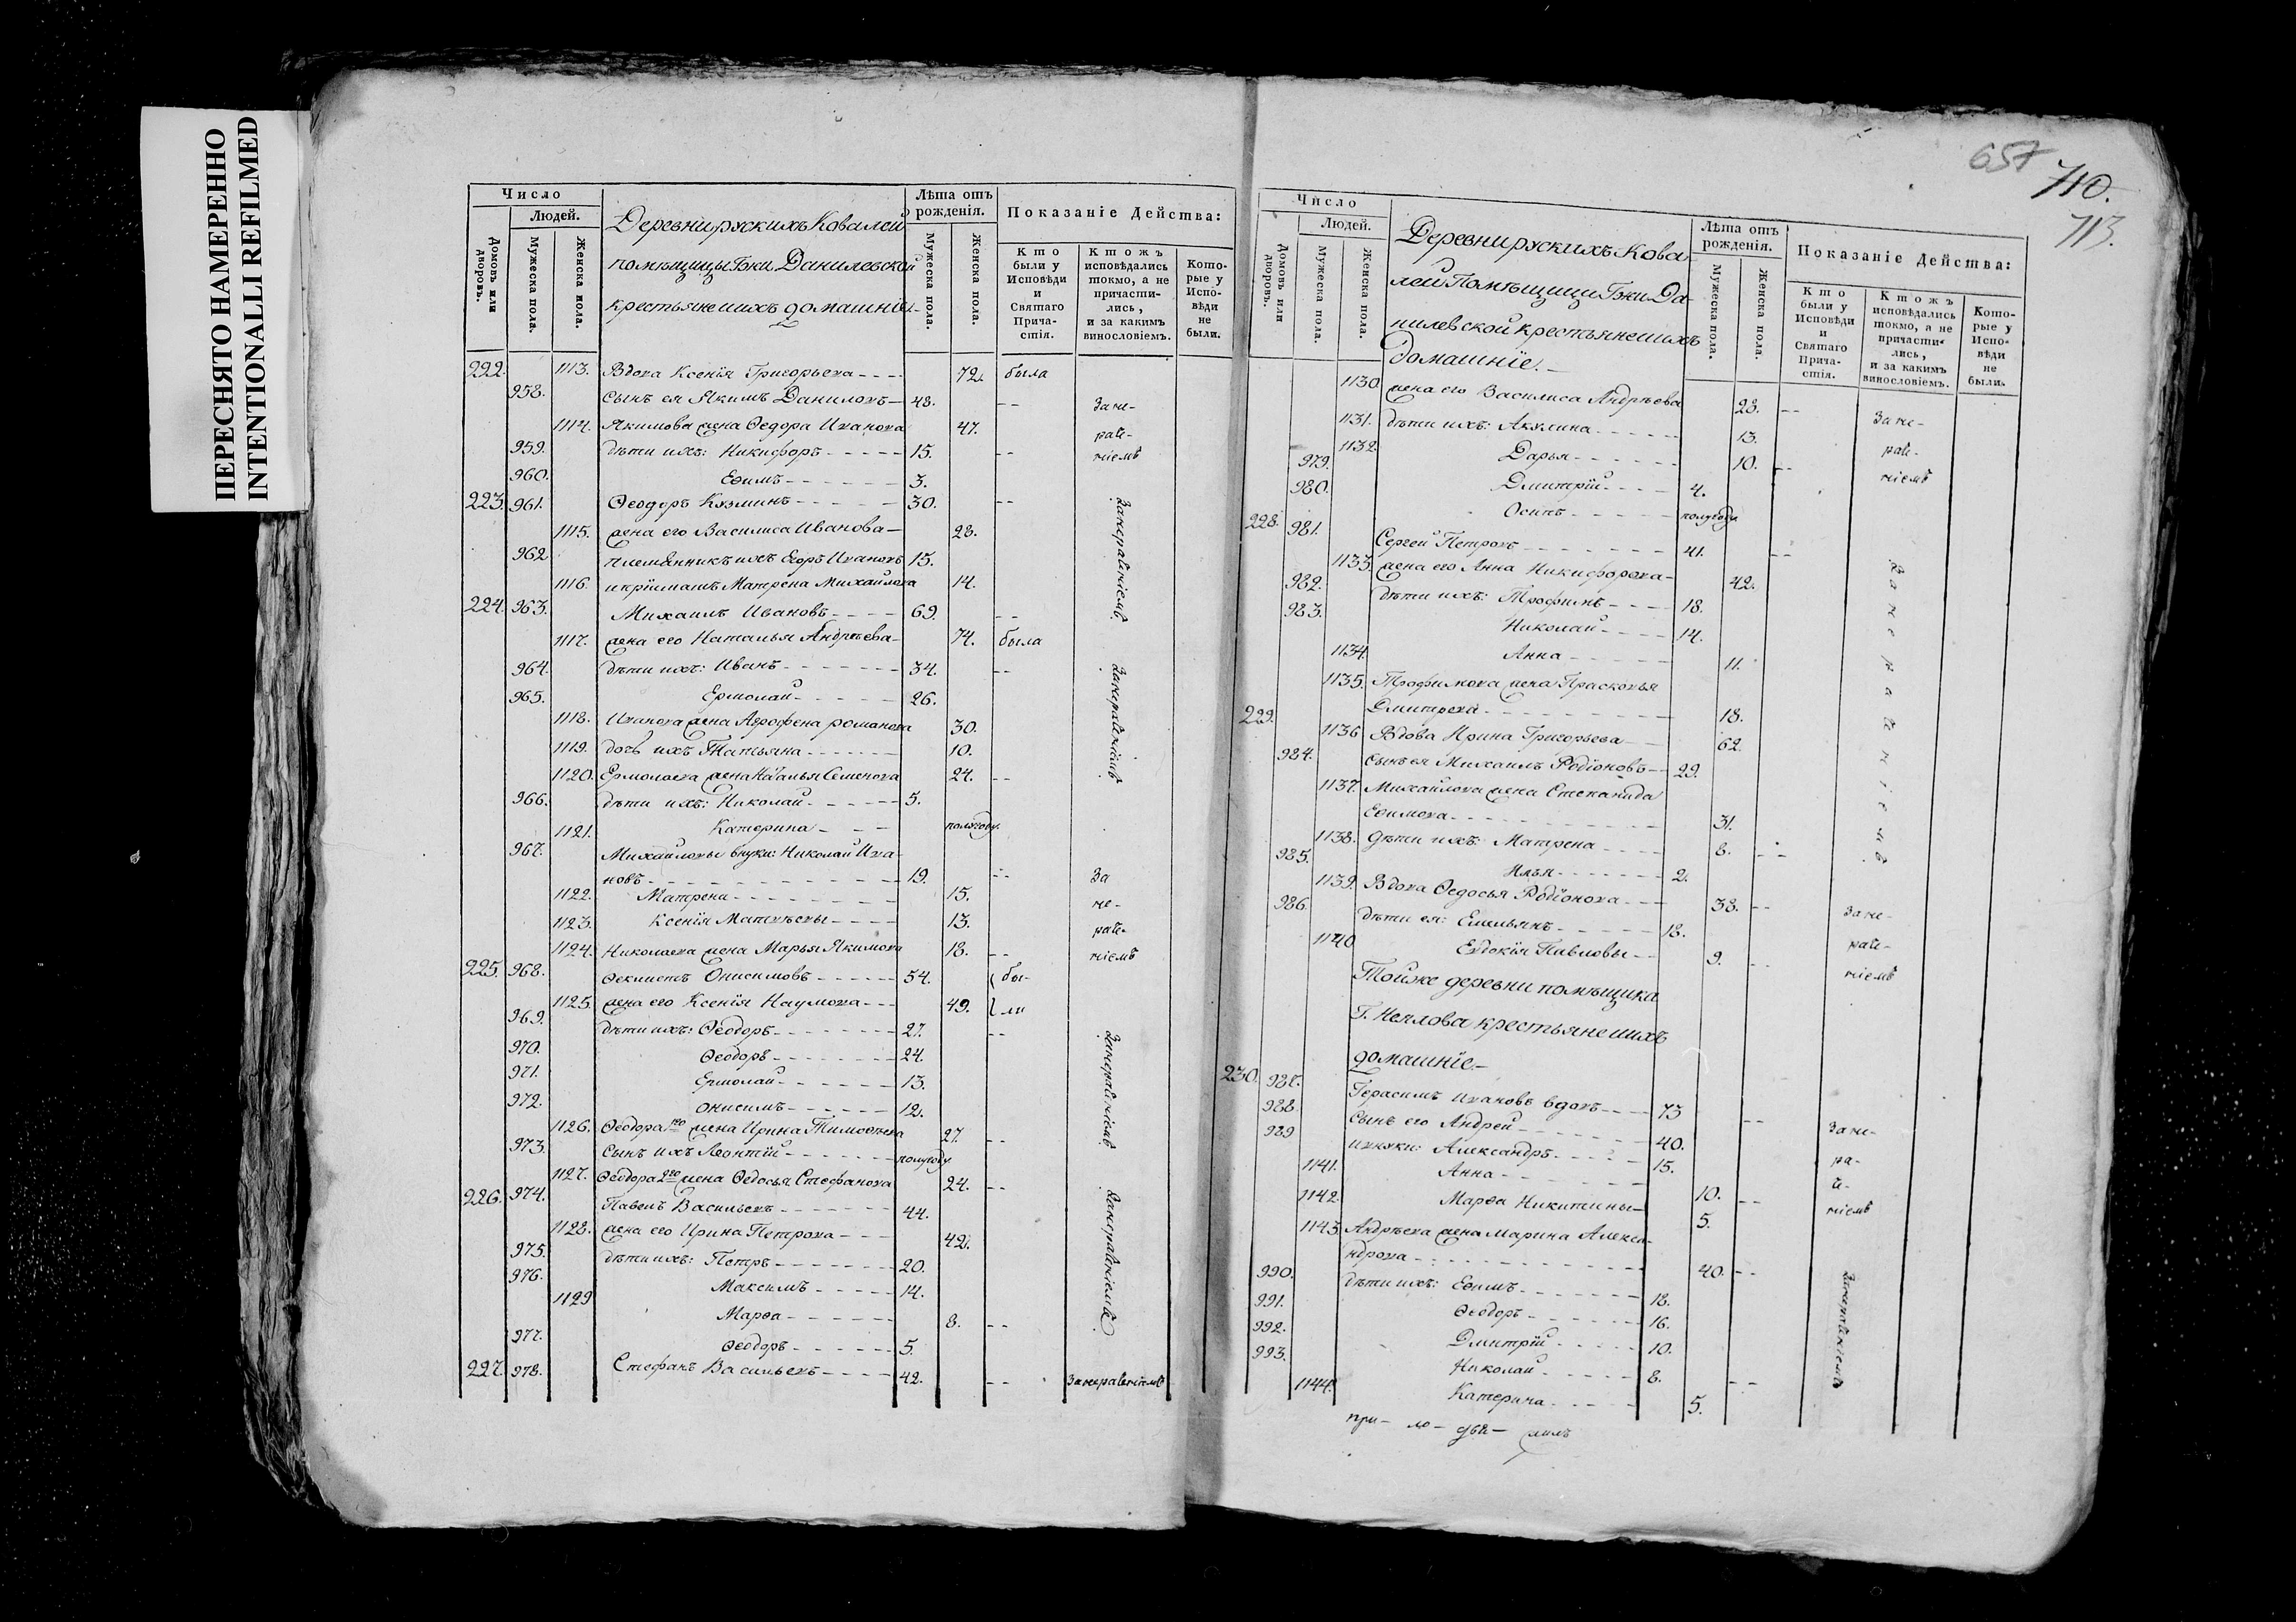 ПЕРЕСНЯТО НАМЕРЕННО
INTENTIONALLI REFILMED
Число
Людей.
Домовъ или дворовъ.
Мужеска пола.
Женска пола.
Деревни рускихъ Ковалей
помѣщицы Гжи Данилевской
крестьяне ихъ домашніе
Лѣта отъ рожденія.
Мужеска пола.
Женска пола.
Показаніе Действа:
Кто были у Исповѣди и Святаго Прича- стія.
Ктожъ исповѣдались токмо, а не причасти- лись, и за какимъ винословіемъ.
Кото- рые у Испо- вѣди не были.
222. 1113. Вдова Ксенія Григорьева 72. была
958. Сынъ ея Якимъ Даниловъ 48.
1114. Якимова жена Ѳедора Иванова 47.
959. дѣти ихъ: Никифоръ 15.
960. Ефимъ 3.
За не- раде- ніемъ
223. 961. Ѳеодоръ Кузминъ 30.
1115. жена его Василиса Иванова 28.
962 племянникъ ихъ Егоръ Ивановъ 15.
1116. Матрена Михайлова 14.
224. 963. Михаилъ Ивановъ 69.
1117. жена его Наталья Андрѣева 74. была
964. дѣти ихъ: Иванъ 34.
965. Ермолай 26.
1118. Иванова жена Агрофена романова 30.
1119. дочь ихъ Татьяна 10.
1120. Ермолаева жена Наталья Семенова 24.
966. дѣти ихъ: Николай 5.
1121. Катерина полугоду
967. Михайловы внуки: Николай Ива-
новъ 19.
1122. Матрена 15.
1123. Ксенія Матвѣевы 13.
1124. Николаева жена Марья Якимова 18.
За не- раде- ніемъ
225. 968. Ѳеклистъ Онисимовъ 54. бы-
1125. жена его Ксенія Наумова 49. ли
969. дѣти ихъ: Ѳеодоръ 27.
970. Ѳеодоръ 24.
971. Ермолай 13.
972. Онисимъ 12.
1126. Ѳеодора 1го жена Ирина Тимоѳѣева 27.
973. Сынъ ихъ Леонтій полугоду
1127. Ѳеодора 2го жена Ѳедосья Стефанова 24.
226. 974. Павелъ Васильевъ 44.
1128. жена его Ирина Петрова 42.
975. дѣти ихъ: Петръ 20.
976. Максимъ 14.
1129 Марѳа 8.
977. Ѳеодоръ 5.
227. 978. Стефанъ Васильевъ 42. За нерадениемъ
657
710.
713.
Число
Людей.
Домовъ или дворовъ.
Мужеска пола.
Женска пола.
Деревни рускихъ Кова-
лей Помѣщицы Гжи Да-
нилевской крестьяне ихъ
домашніе.
Лѣта отъ рожденія.
Мужеска пола.
Женска пола.
Показаніе Действа:
Кто были у Исповѣди и Святаго Прича- стія.
Ктожъ исповѣдались токмо, а не причасти- лись, и за какимъ винословіемъ.
Кото- рые у Испо- вѣди не были.
1130. жена его Василиса Андрѣева 28.
1131. дѣти ихъ: Акулина 13.
1132. Дарья 10.
979. Дмитрій 4.
980. Осипъ полугоду
За не- раде- ніемъ
228. 981. Сергей Петровъ 41.
1133. жена его Анна Никифорова 42.
982. дѣти ихъ: Трофимъ 18.
983. Николай 14.
1134. Анна 11.
1135. Трофимова жена Прасковья
Дмитрева 18.
229. 1136 Вдова Ирина Григорьева 62.
984. Сынъ ея Михаилъ Родіоновъ 29.
1137. Михайлова жена Степанида
Ефимова 31.
1138. дѣти ихъ: Матрена 8.
985. Илья 2.
1139. Вдова Ѳедосья Родіонова 38.
986. дѣти ея: Емельянъ 18.
1140 Евдокія Павловы 9.
За не- раде- ніемъ
Тойже деревни помѣщика
Г. Неплова крестьяне ихъ
домашніе
230. 987. Герасимъ Ивановъ вдовъ 73
988. Сынъ его Андрей 40.
989 внуки: Александръ 15.
1141. Анна 10.
1142. Марѳа Никитины 5.
1143. Андрѣева жена Марина Алекса-
ндрова 40.
990. дѣти ихъ: Ефимъ 18.
991. Ѳеодоръ 16.
992. Дмитрій 10.
993. Николай 8.
1144. Катерина 5.